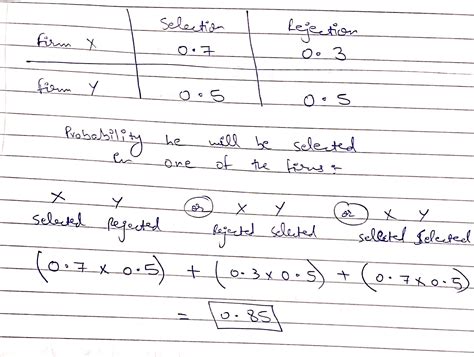 Selection Rejection
firm X 0.7 0.3
firm Y 0.5 0.5
Probability he will be selected
in one of the firms =
X Y or X Y or X Y
selected Rejected Rejected selected selected selected
(0.7 x 0.5) + (0.3 x 0.5) + (0.7 x 0.5)
= 0.85